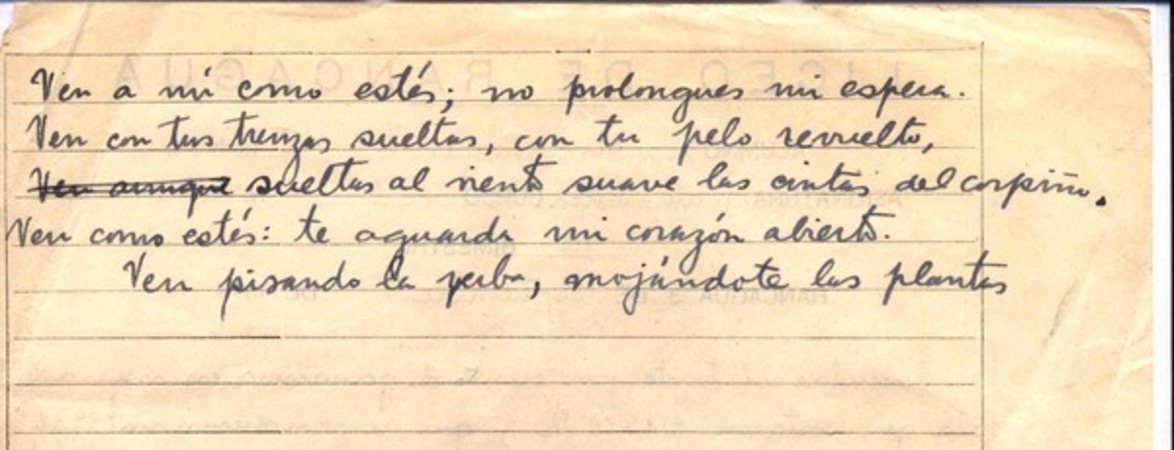 Ven a mí como estés; no prolongues mi espera.
Ven con tus trenzas sueltas, con tu pelo revuelto,
Ven aunque sueltas al viento suave las cintas del corpiño.
Ven como estés: te aguarda mi corazón abierto.
Ven pisando la yerba, mojándote las plantas